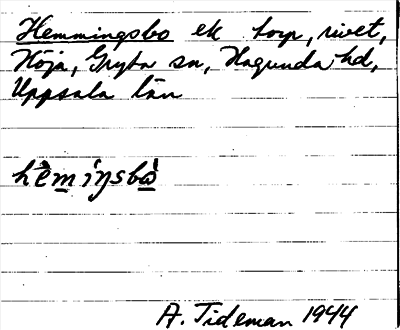 Hemmingsbo ek torp, rivet,
Höja, Gryta sn, Hagunda hd,
Uppsala län
hèmiŋsbò
A. Tideman 1944